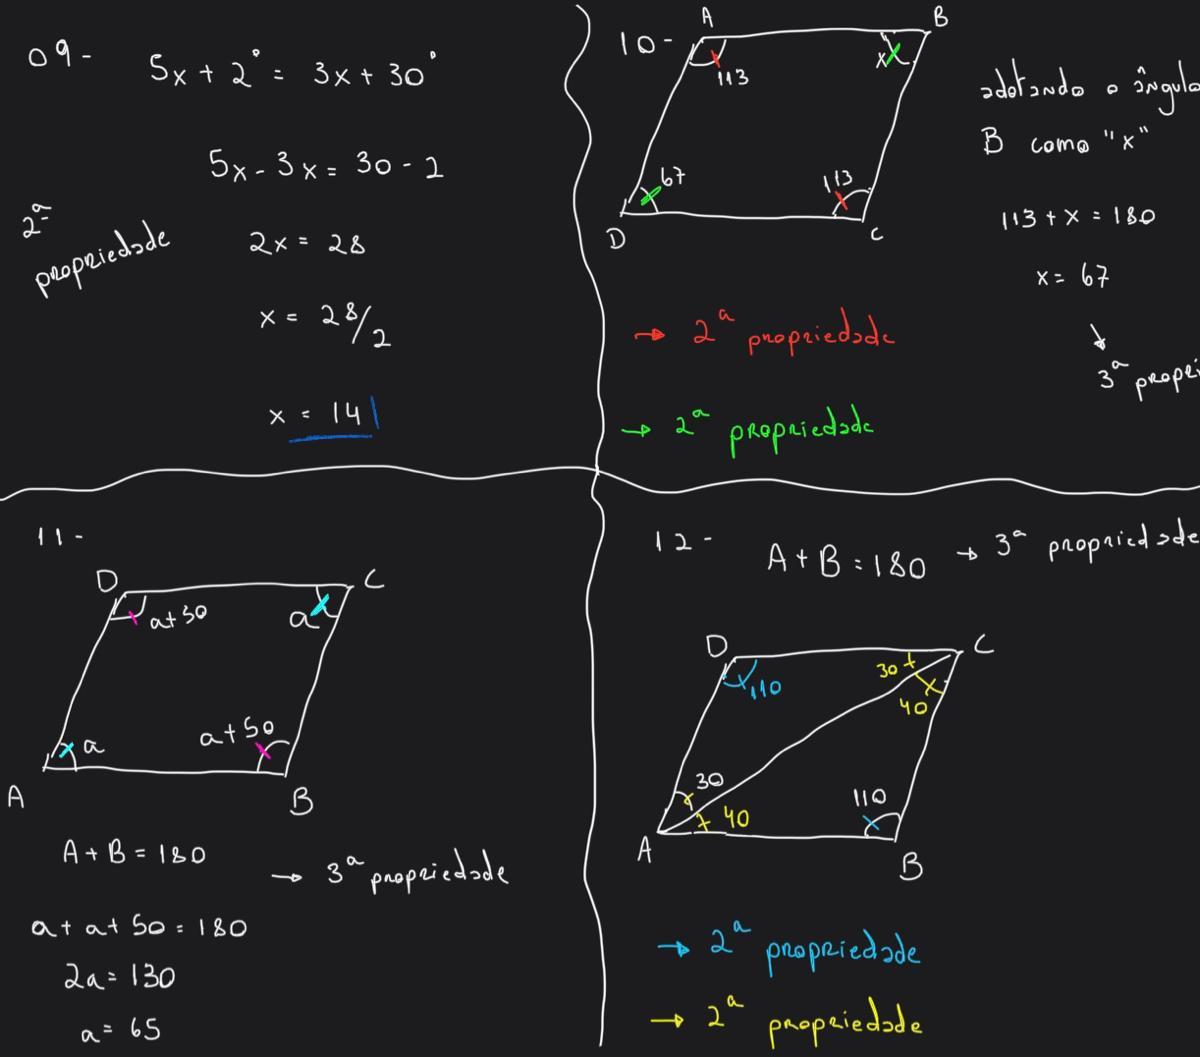 09-
5x + 2° = 3x + 30°
5x - 3x = 30 - 2
2ª
propriedade
2x = 28
x = 28/2
x = 14
10-
A
B
113
x
67
113
D
C
adotando o ângulo
B como "x"
113 + x = 180
x = 67
3ª propri
→ 2ª propriedade
→ 2ª propriedade
11-
D
C
a+50
a
a
a+50
A
B
A + B = 180
→ 3ª propriedade
a + a + 50 = 180
2a = 130
a = 65
12-
A + B = 180 → 3ª propriedade
D
C
110
30
40
30
40
110
A
B
→ 2ª propriedade
→ 2ª propriedade